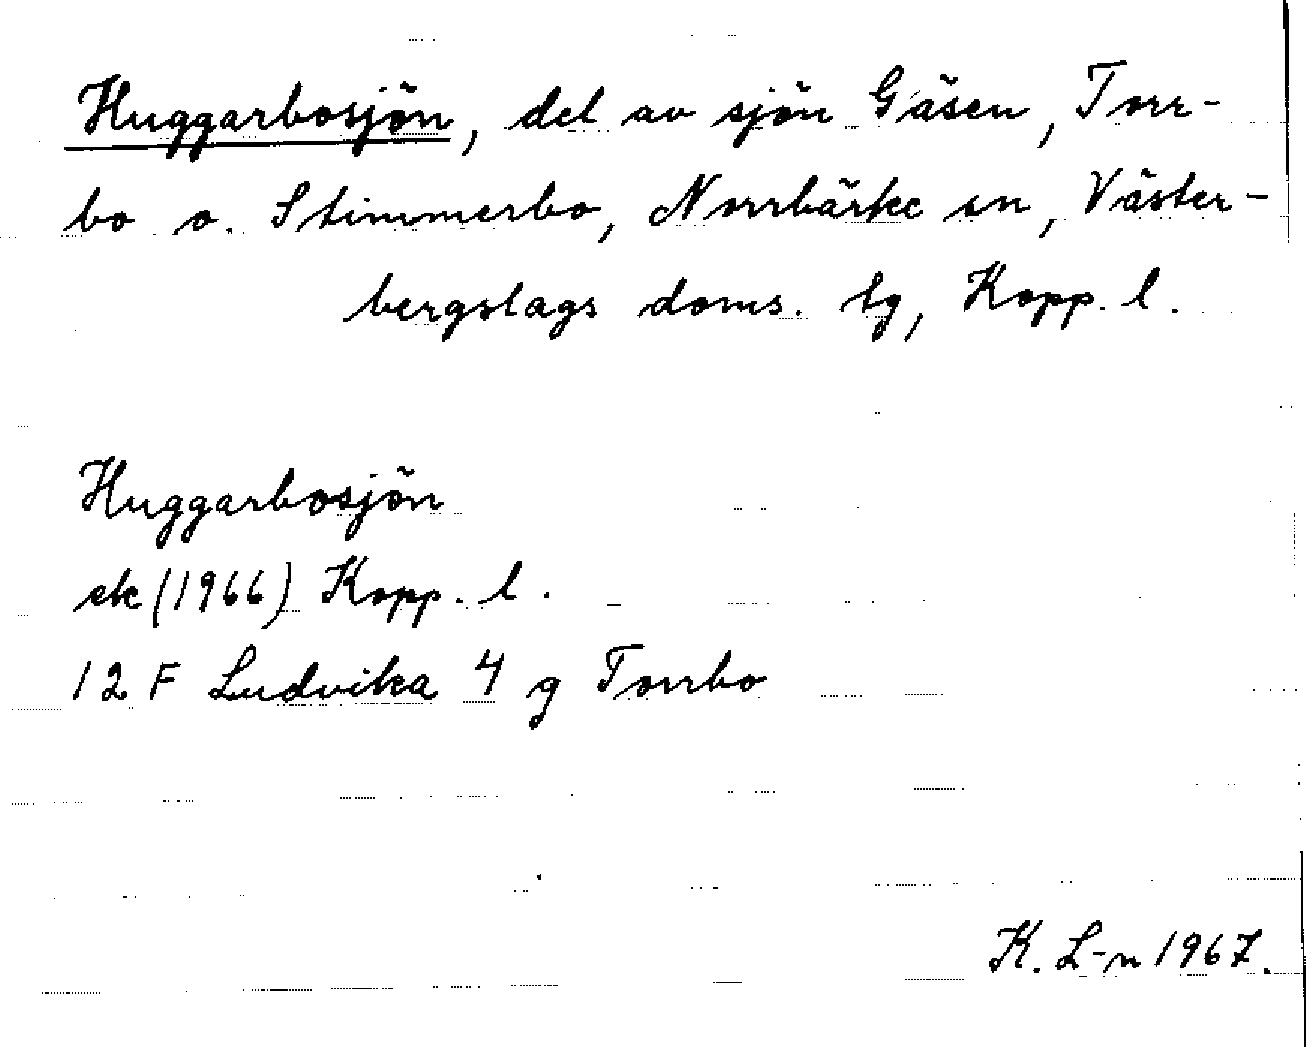 Huggarbosjön, del av sjön Gäsen, Torr-
bo o. Stimmerbo, Norrbärke sn, Väster-
bergslags doms. tg, Kopp. l.
Huggarbosjön
ek (1966) Kopp. l.
12 F Ludvika 4 g Torrbo
K. L-n 1967.